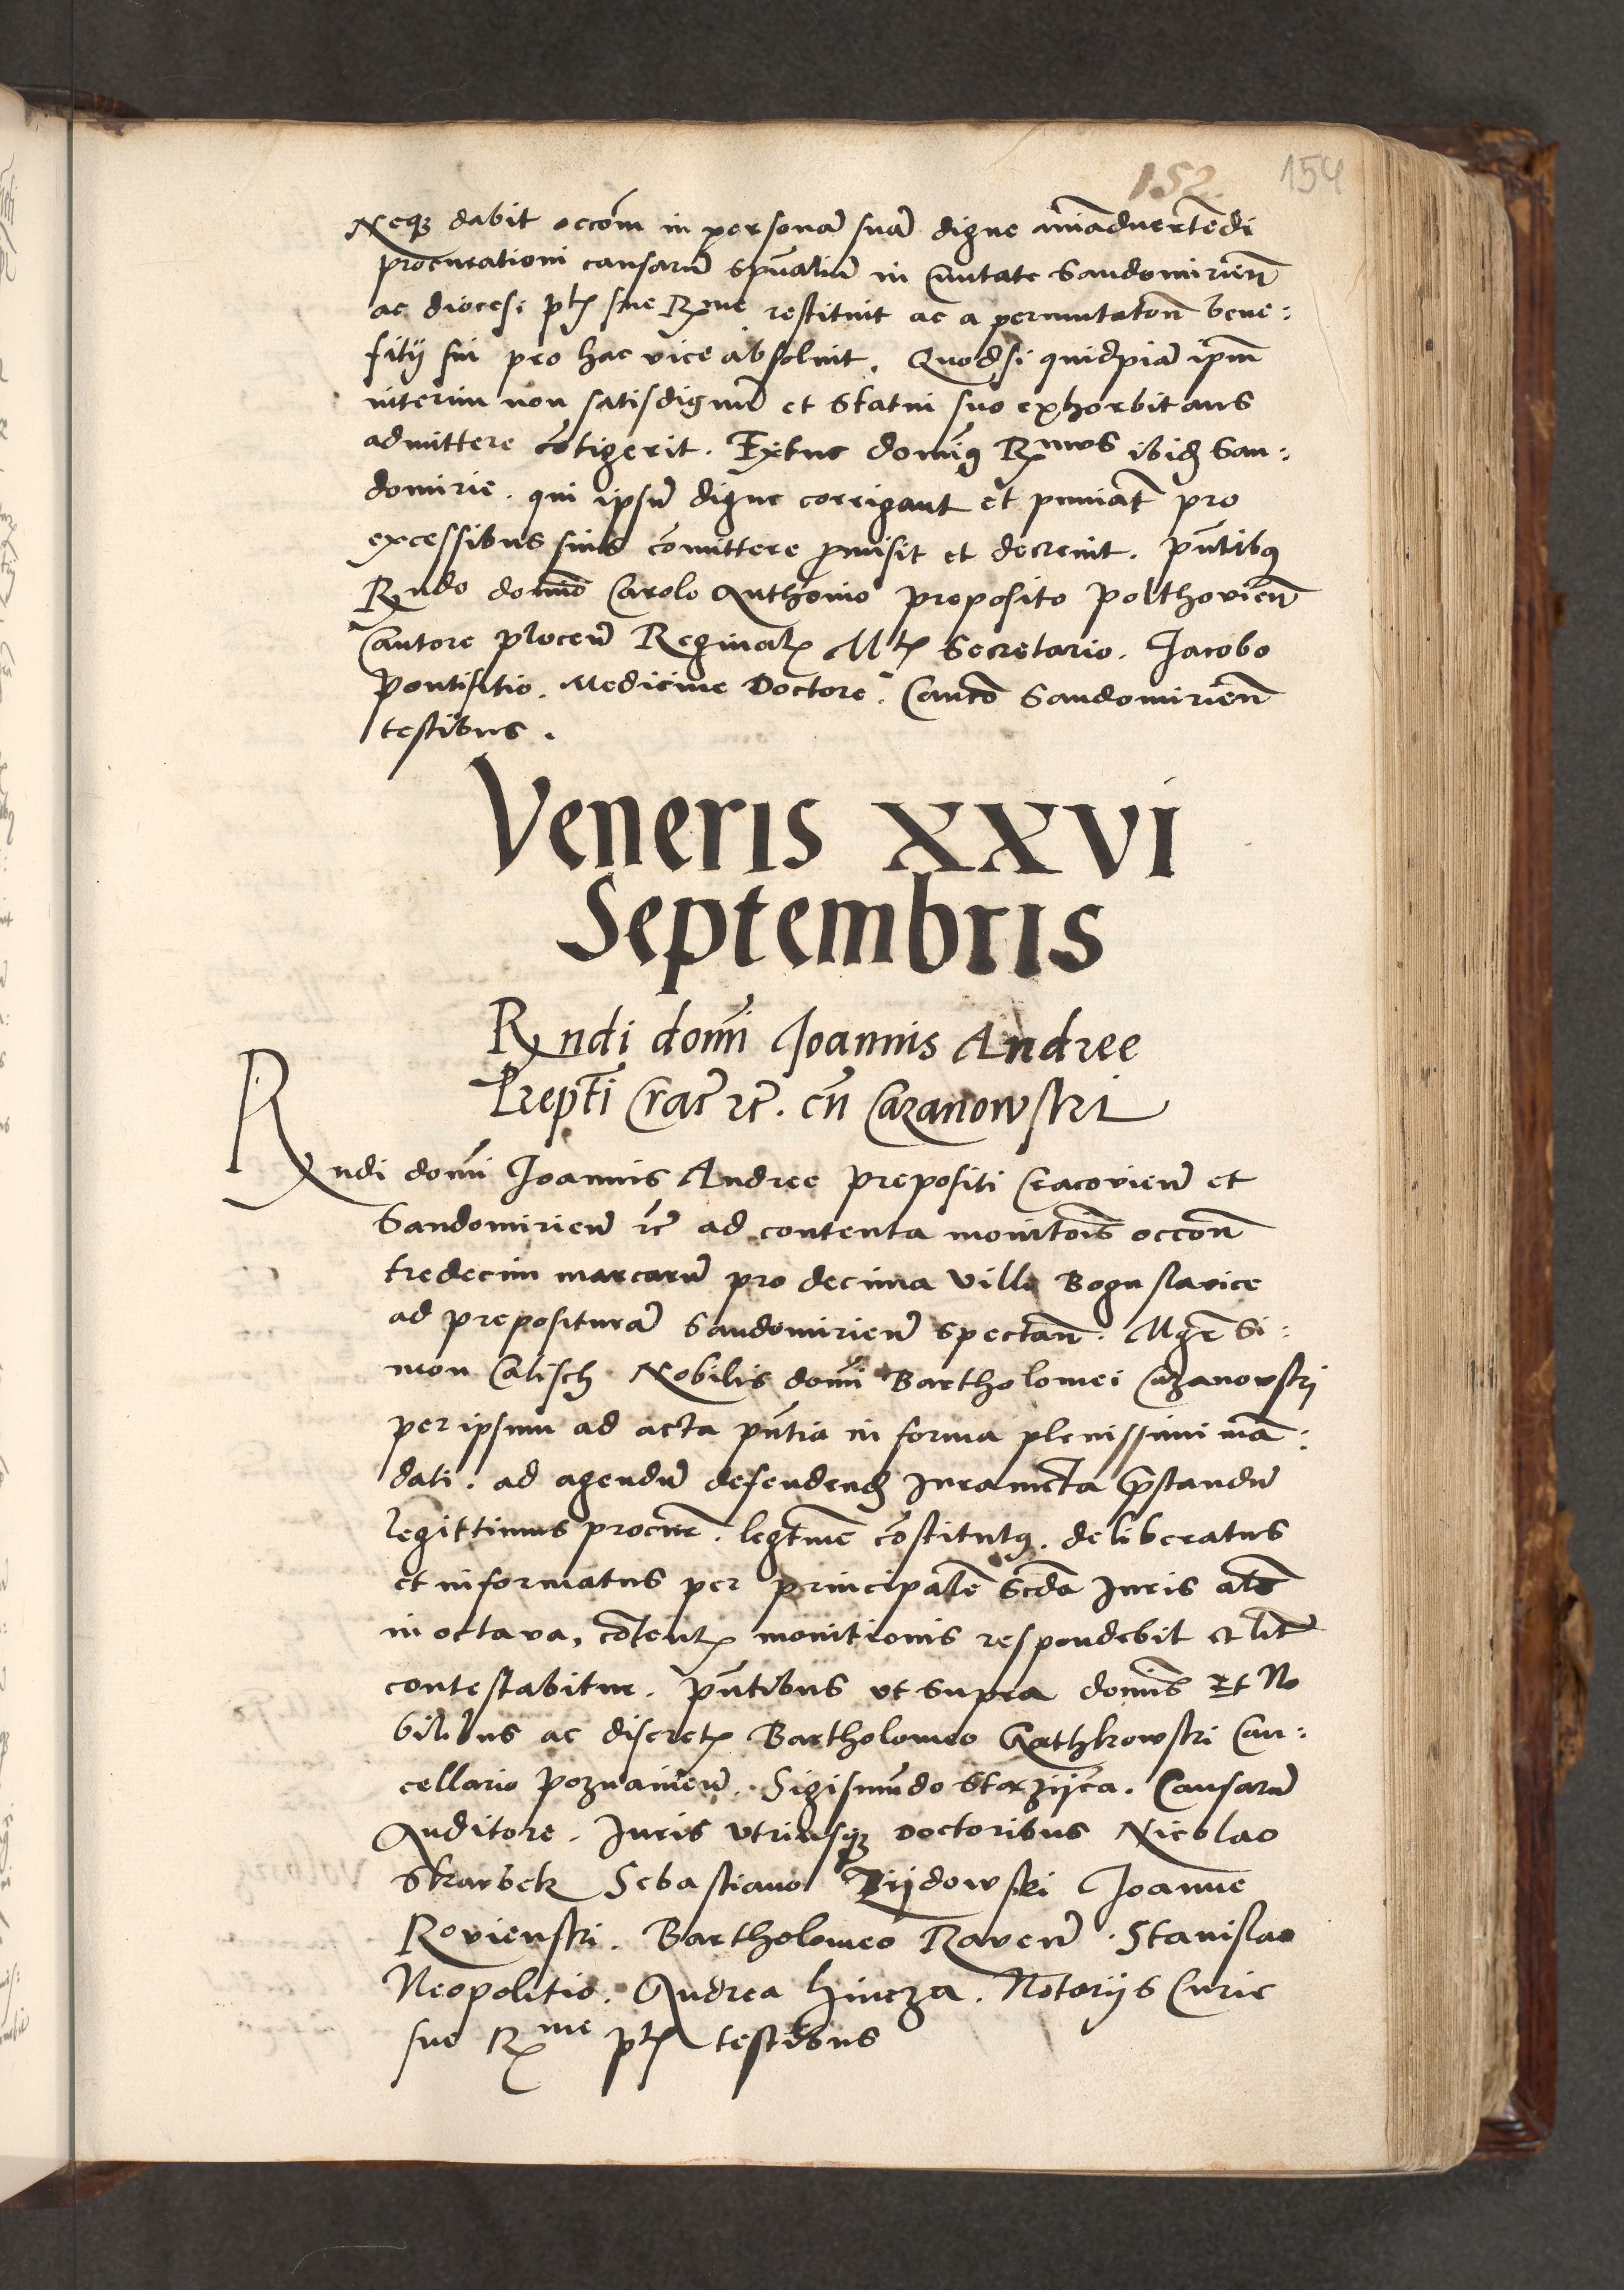 152
154
Neq₃ dabit occom̄ in personā suā digne aīaduertēdi
procurationi causarū spūaliū in Ciuitate Sandomirien̄
ac diocesi p̄t͡ sue Rme restituit ac a permutaton̄ bene:
fitij sui pro hac vice absoluit. Quodsi quidpiā ipm̄
interim non satisdignū et Statui suo exhorbitans
admittere cōtigerit. Extunc domin9 Rmus ibid̄ San:
domirie. qui ipsū digne corrigant et puniāt pro
excessibus suis cōmittere p̄misit et decreuit. pn̄tib9
Rndo domīo Carolo Anthonio preposito Polthovien̄
Cantore plocen̄ Reginal͡ Mt͡ Secretario. Jacobo
Pontifitio. Medicine Doctore. Canco Sandomirien̄
testibus.
Veneris XXVI
Septembris
Rndi dom̄i Joannis Andree
Prep̄ti Crac̄ rc̄. cn̄ Cazanowski
Rndi dom̄i Joannis Andree prepositi Cracovien̄ et
Sandomirien̄ rc̄ ad contenta monitois̄ occon̄
tredecim marcarū pro decima ville Boguslavice
ad prepositurā Sandomirien̄ spectan̄. Mgr̄ Si:
mon Calisch Nobilis dom̄i Bartholomei Cazanowskj
per ipsum ad acta pn̄tia in forma plenissimi mā:
dati. ad agendū defendend̄ Juramēta p̄standū
legittimus procur̄. legtme cōstitut9. deliberatus
et informatus per principalē Scd̄a Juris atō
in octava, cōtent͡ monitionis respondebit et litē
contestabitur. pn̄tibus vt supra domīs Et No
bilibus ac discret͡ Bartholomeo Ganthkowski Can:
cellario Poznanien̄. Sigismūdo Starzijca. Causarū
Auditore. Juris Vtriusq₃ Doctoribus Nicolao
Skarbek Sebastiano Zijdowski Joanne
Rovienski. Bartholomeo Raven̄. Stanislao
Neopolitio. Andrea Hincza. Notarijs Curie
sue Rme p̄t͡ testibus